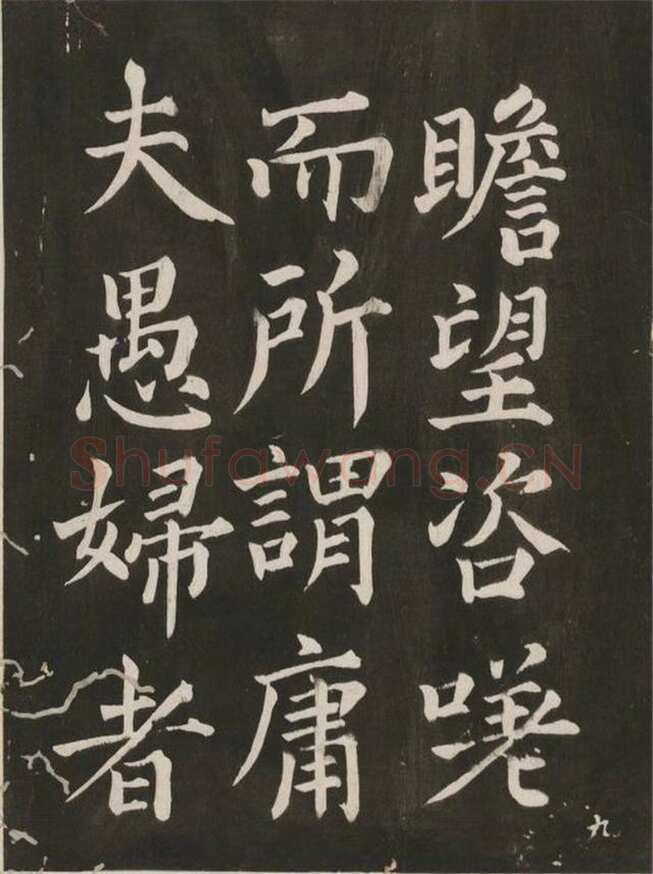 瞻望咨嗟
而所謂庸
夫愚婦者
九
Shufawang.CN